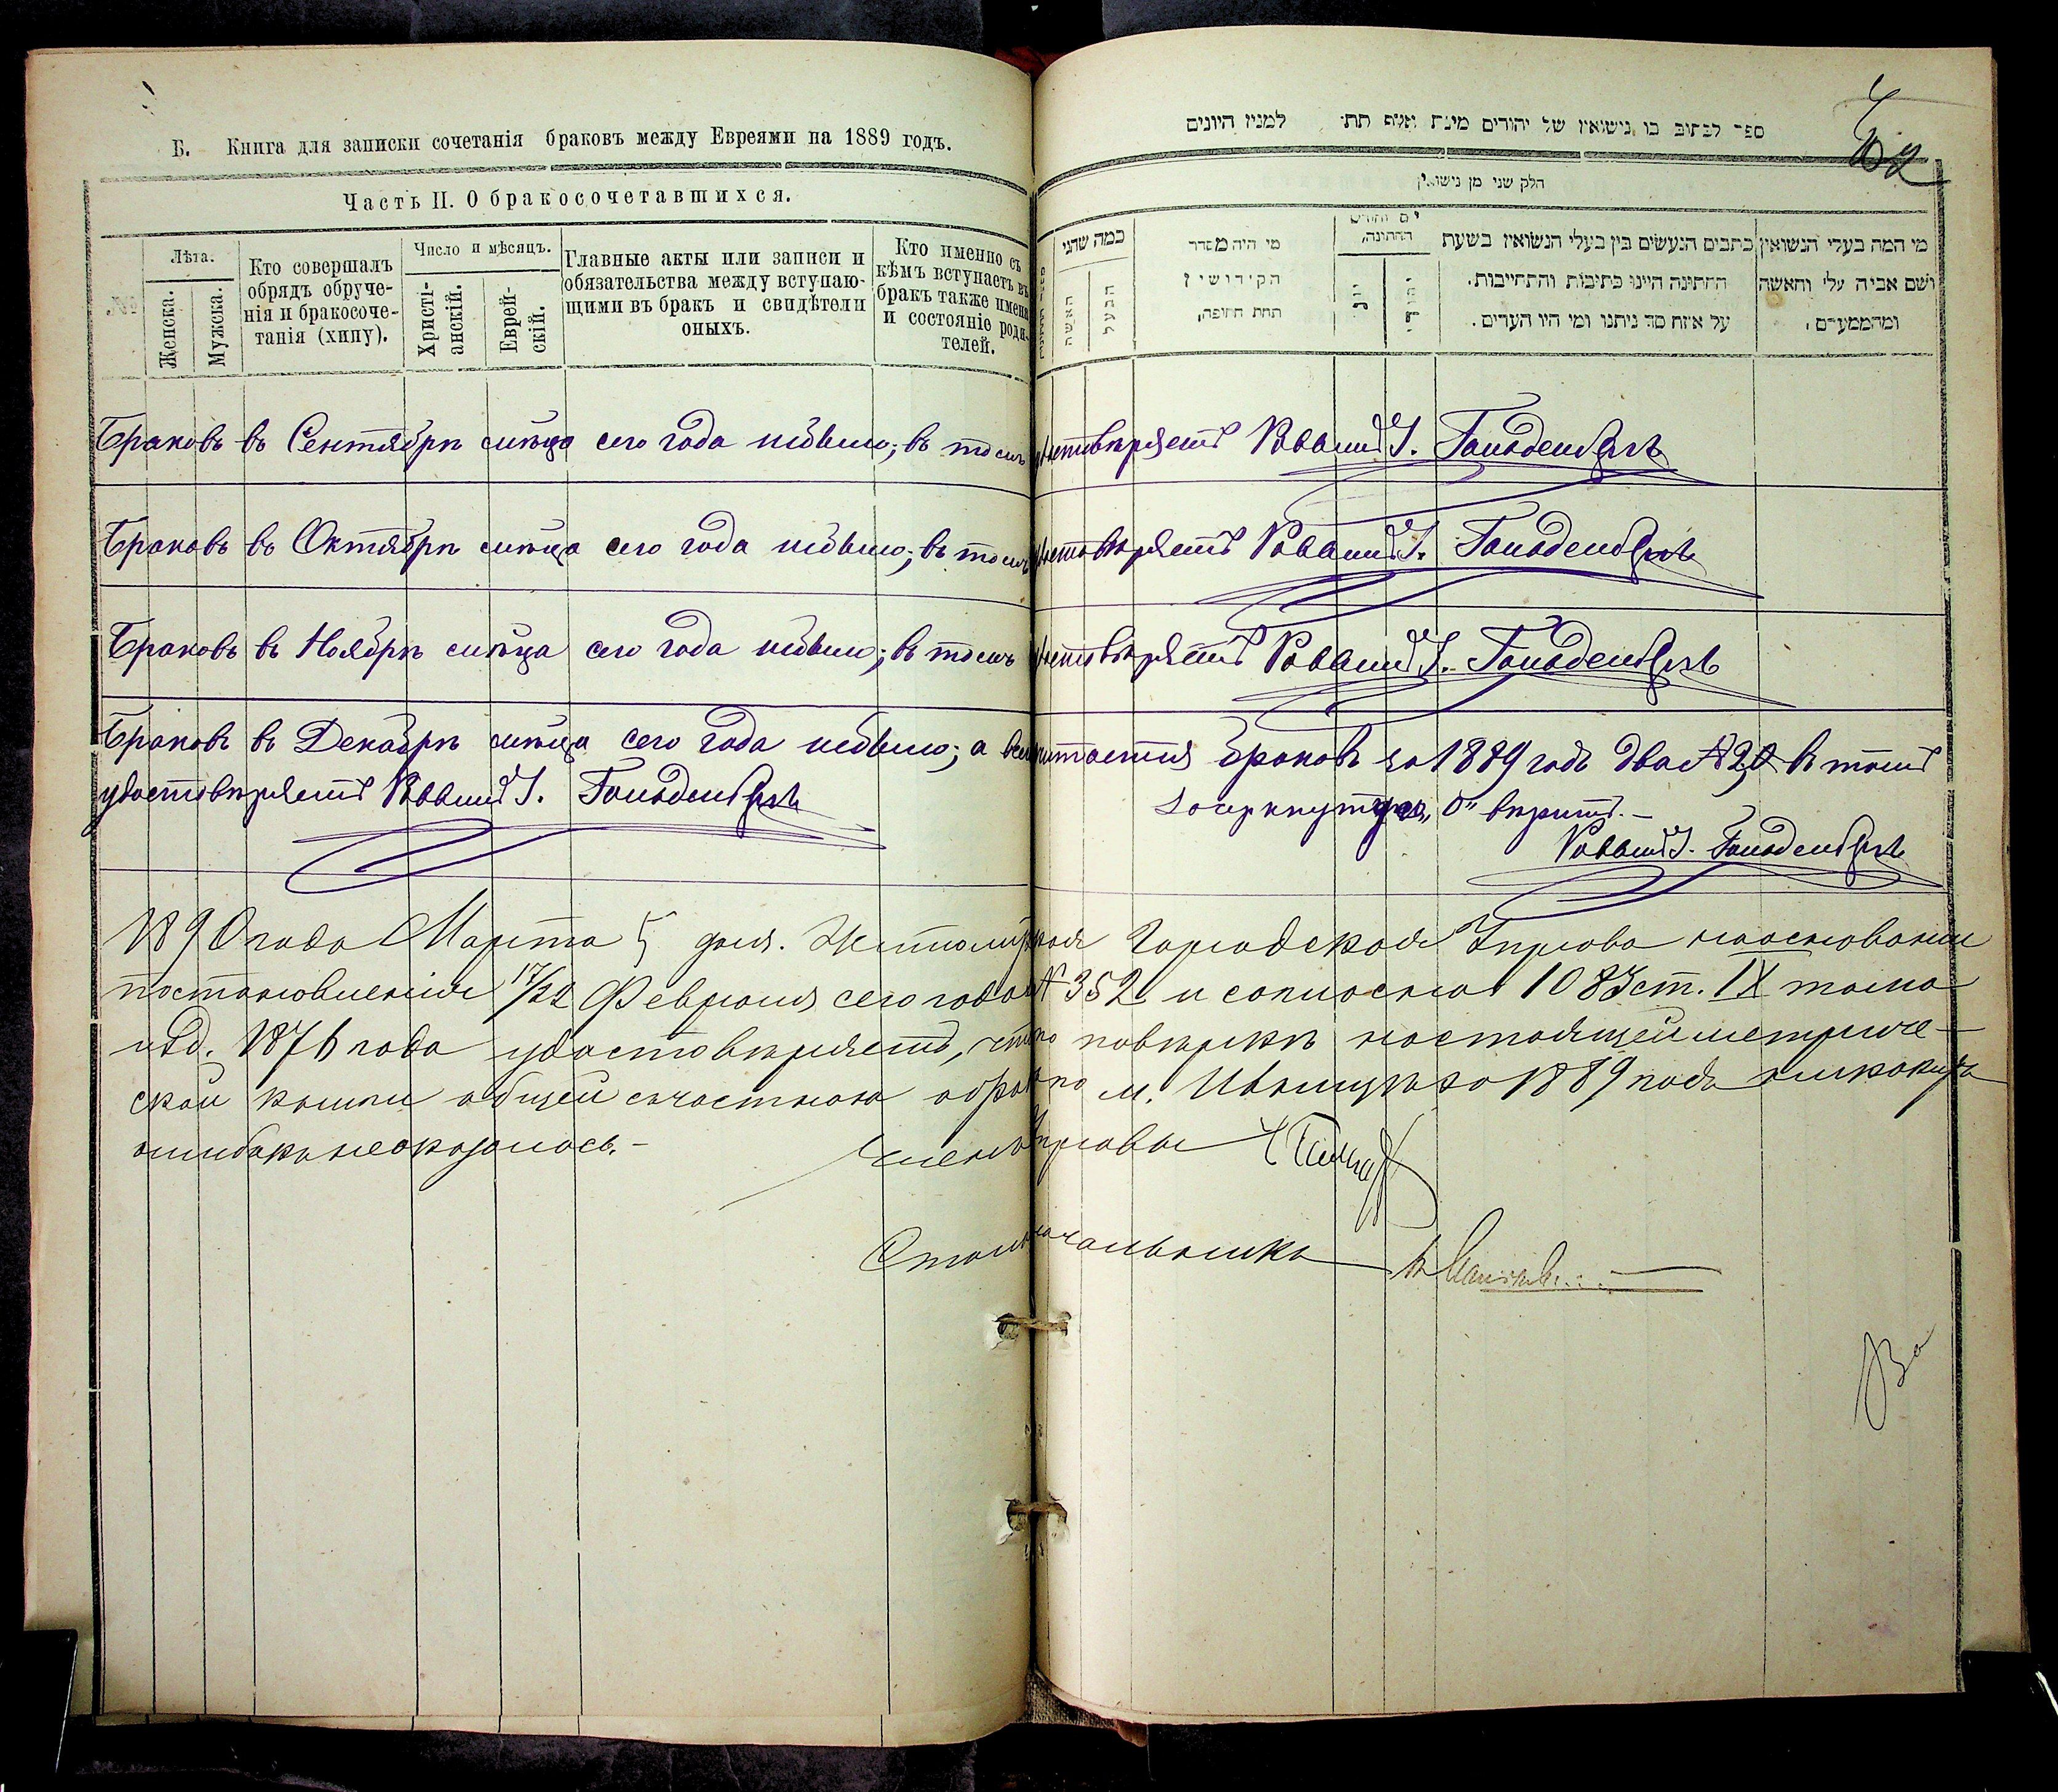 Б. Книга для записки сочетанія браковъ между Евреями на 1889 годъ.
Часть II. О бракосочетавшихся.
№
Лѣта.
Женска.
Мужска.
Кто совершалъ
обрядъ обруче-
нія и бракосоче-
танія (хипу).
Число и мѣсяцъ.
Христі-
анскій.
Еврей-
скій.
Главные акты или записи и
обязательства между вступаю-
щими въ бракъ и свидѣтели
оныхъ.
Кто именно съ
кѣмъ вступаетъ въ
бракъ также имена
и состояніе роди-
телей.
ספר לכתוב בו נישואין של יהודים מינת אלף תת למנין היונים
חלק שני מן נישואין
כמה שהני
האשה
הבעל
מי היה מסדר
הקידושין
תחת החופה,
יום וחודש
החתונה,
יוני
יהודי
כתבים הנעשים בין בעלי הנשואין בשעת
החתונה היינו כתיבות והתחייבות.
על איזה סך ניתנו ומי היו העדים.
מי המה בעלי הנשואין
ושם אביה עלי והאשה
ומהממערים,
Браковъ въ Сентябрѣ мѣсяцѣ сего года небыло; въ томъ удостовѣряетъ Раввинъ І.
Браковъ въ Октябрѣ мѣсяцѣ сего года небыло; въ томъ удостовѣряетъ Раввинъ І.
Браковъ въ Ноябрѣ мѣсяцѣ сего года небыло; въ томъ удостовѣряетъ Раввинъ І.
Браковъ въ Декабрѣ мѣсяцѣ сего года небыло; а всего считается браковъ за 1889 годъ два № 2, 0 въ томъ
удостовѣряетъ Раввинъ І.
зачеркнутому „0" вѣрить.—
Раввинъ І.
1890 года Марта 5 дня. Житомирская Городская Управа на основаніи
постановленія 17/22 Февраля сего года № 352 и согласно 1083 ст. IX тома
изд. 1876 года удостовѣряетъ, что по повѣркѣ настоящей метриче-
ской книги общей съ частною о бракахъ по м. за 1889 годъ никакихъ
ошибокъ не оказалось.—
Членъ Управы
Столоначальникъ